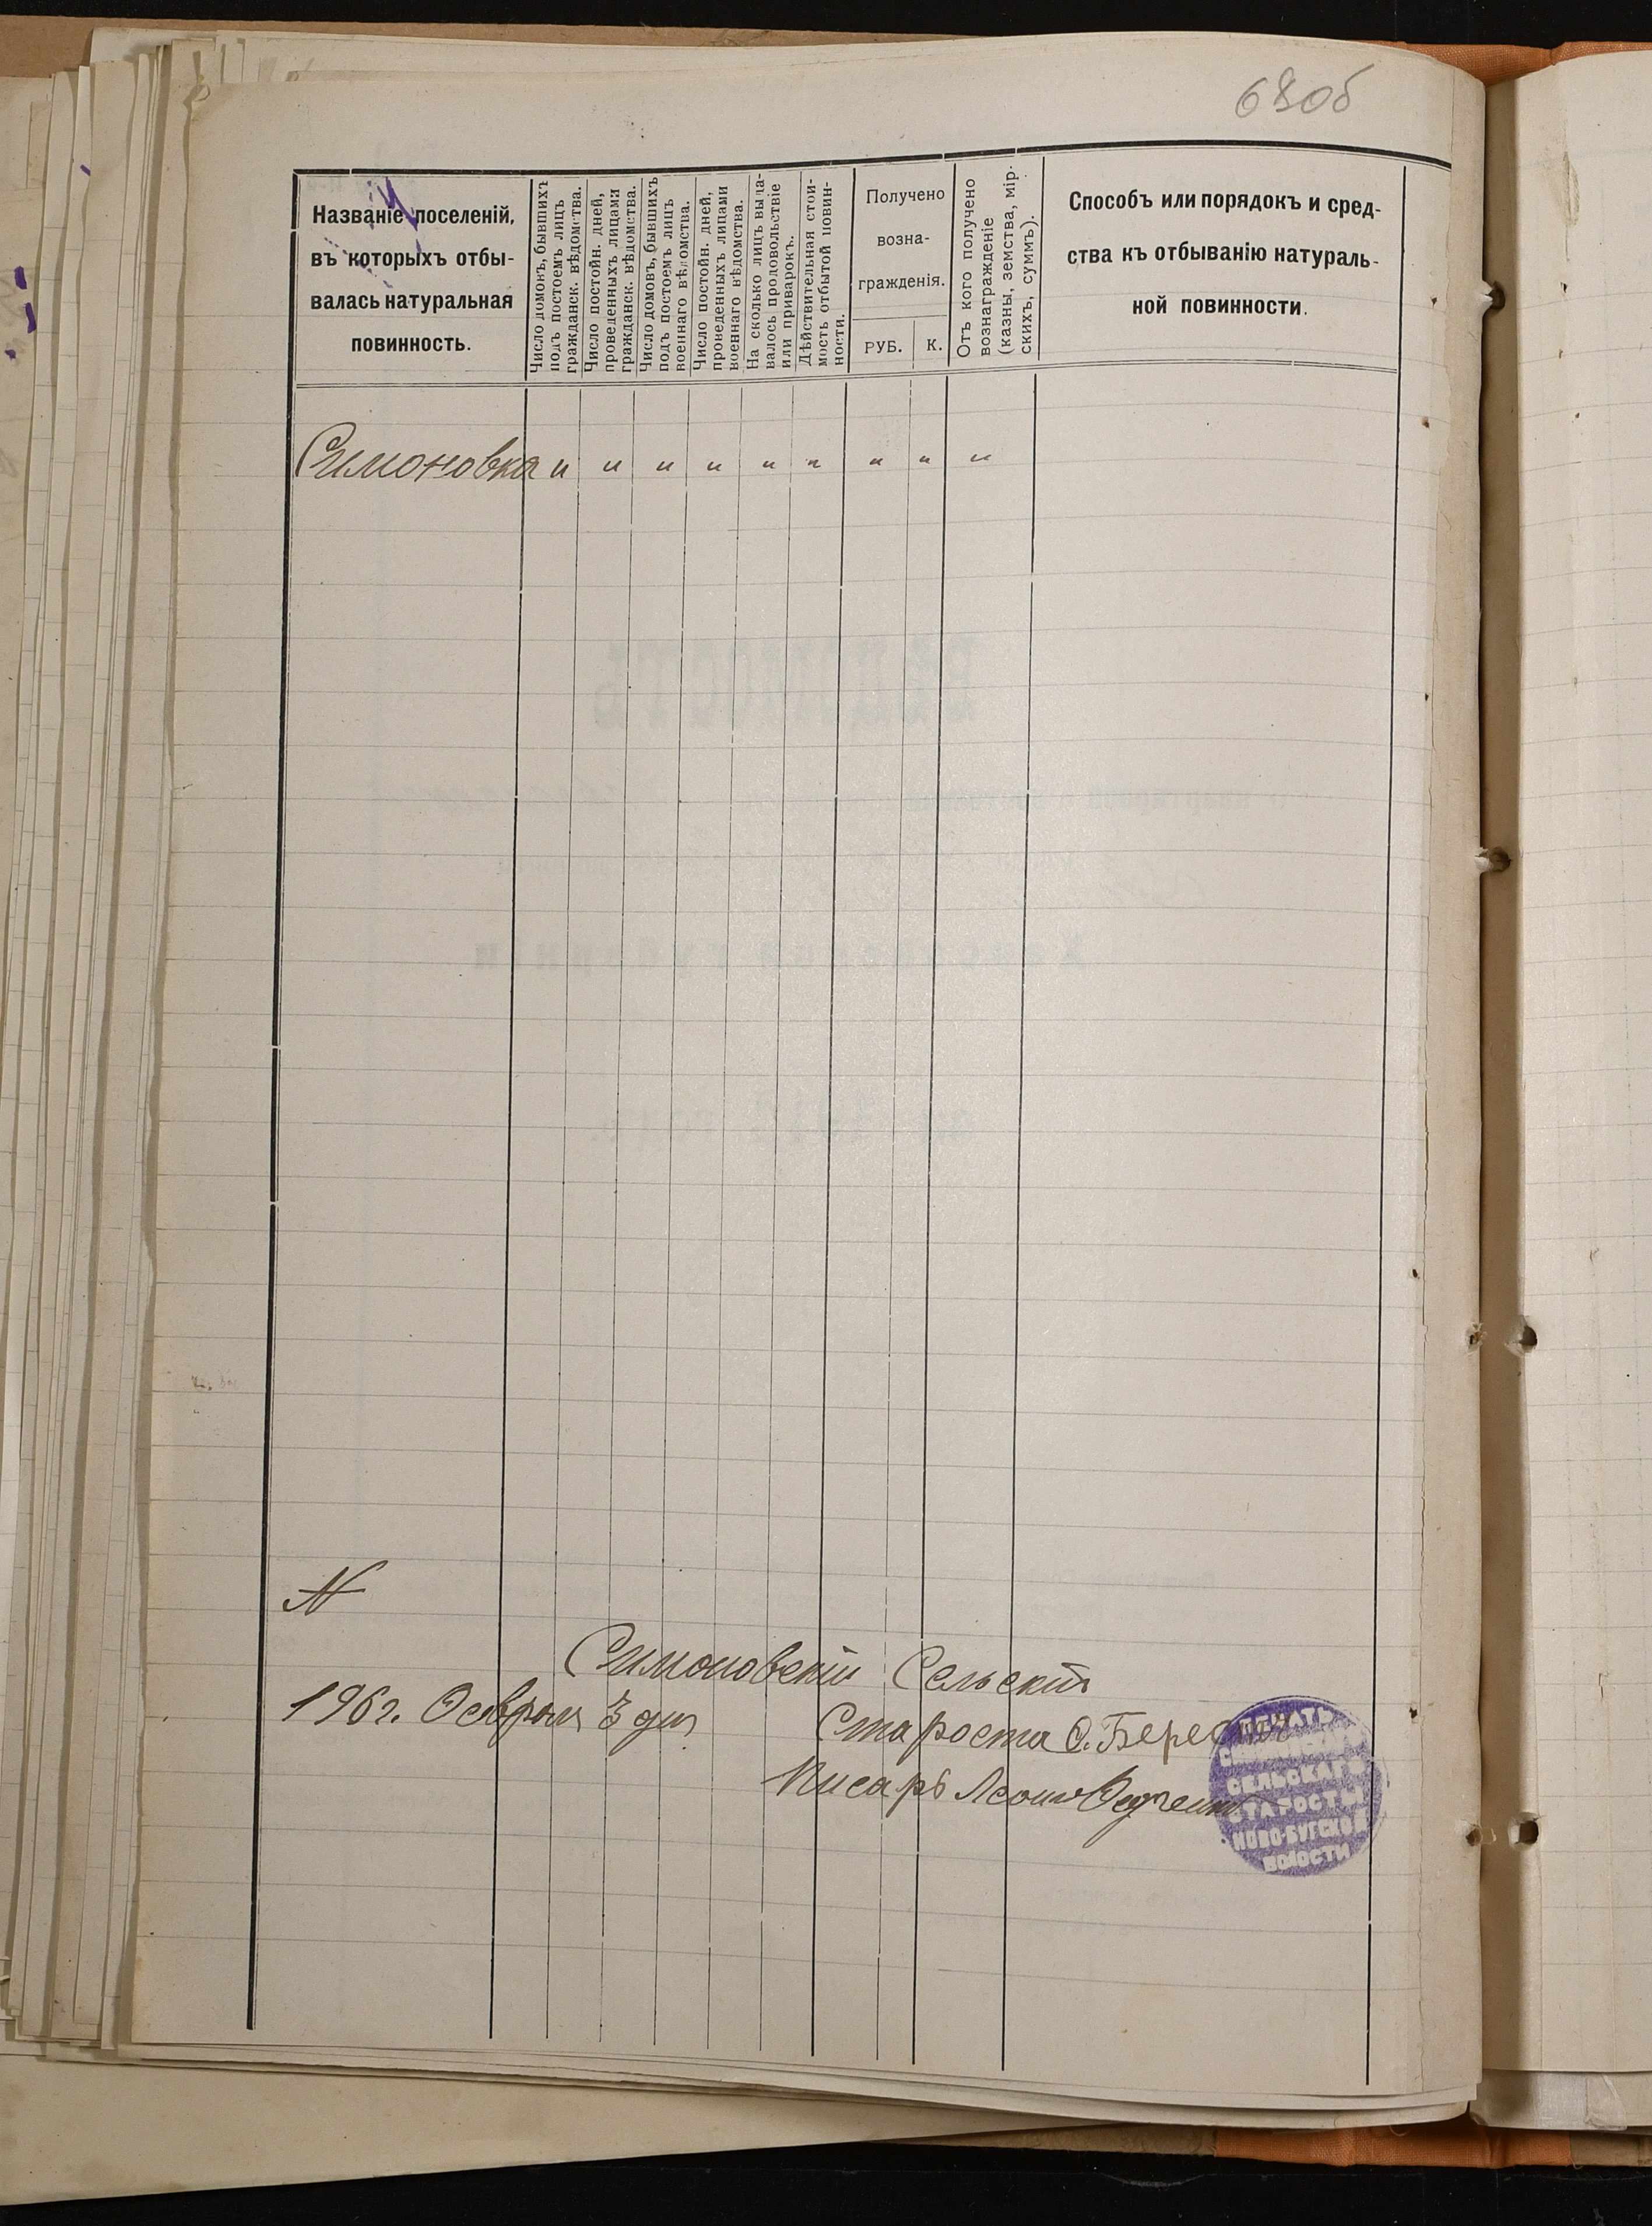 680б
Названіе поселеній,
въ которыхъ отбы-
валась натуральная
повинность.
Число домовъ, бывшихъ
подъ постоемъ лицъ
гражданск. вѣдомства.
Число постойн. дней,
проведенныхъ лицами
гражданск. вѣдомства.
Число домовъ, бывшихъ
подъ постоемъ лицъ
военнаго вѣдомства.
Число постойн. дней,
проведенныхъ лицами
военнаго вѣдомства.
На сколько лицъ выда-
валось продовольствіе
или приварокъ.
Дѣйствительная стои-
мость отбытой повин-
ности.
Получено
возна-
гражденія.
РУБ. К.
Отъ кого получено
вознагражденіе
(казны, земства, мір-
скихъ, суммъ).
Способъ или порядокъ и сред-
ства къ отбыванію натураль-
ной повинности.
Симоновка " " " " " " " " "
N
Симоновскій Сельскій
196г. Февраля 3 дня Староста О.
Писарь
ПЕЧАТЬ
СЕЛЬСКАГО
СТАРОСТЫ
НОВО-БУГСКОЙ
ВОЛОСТИ